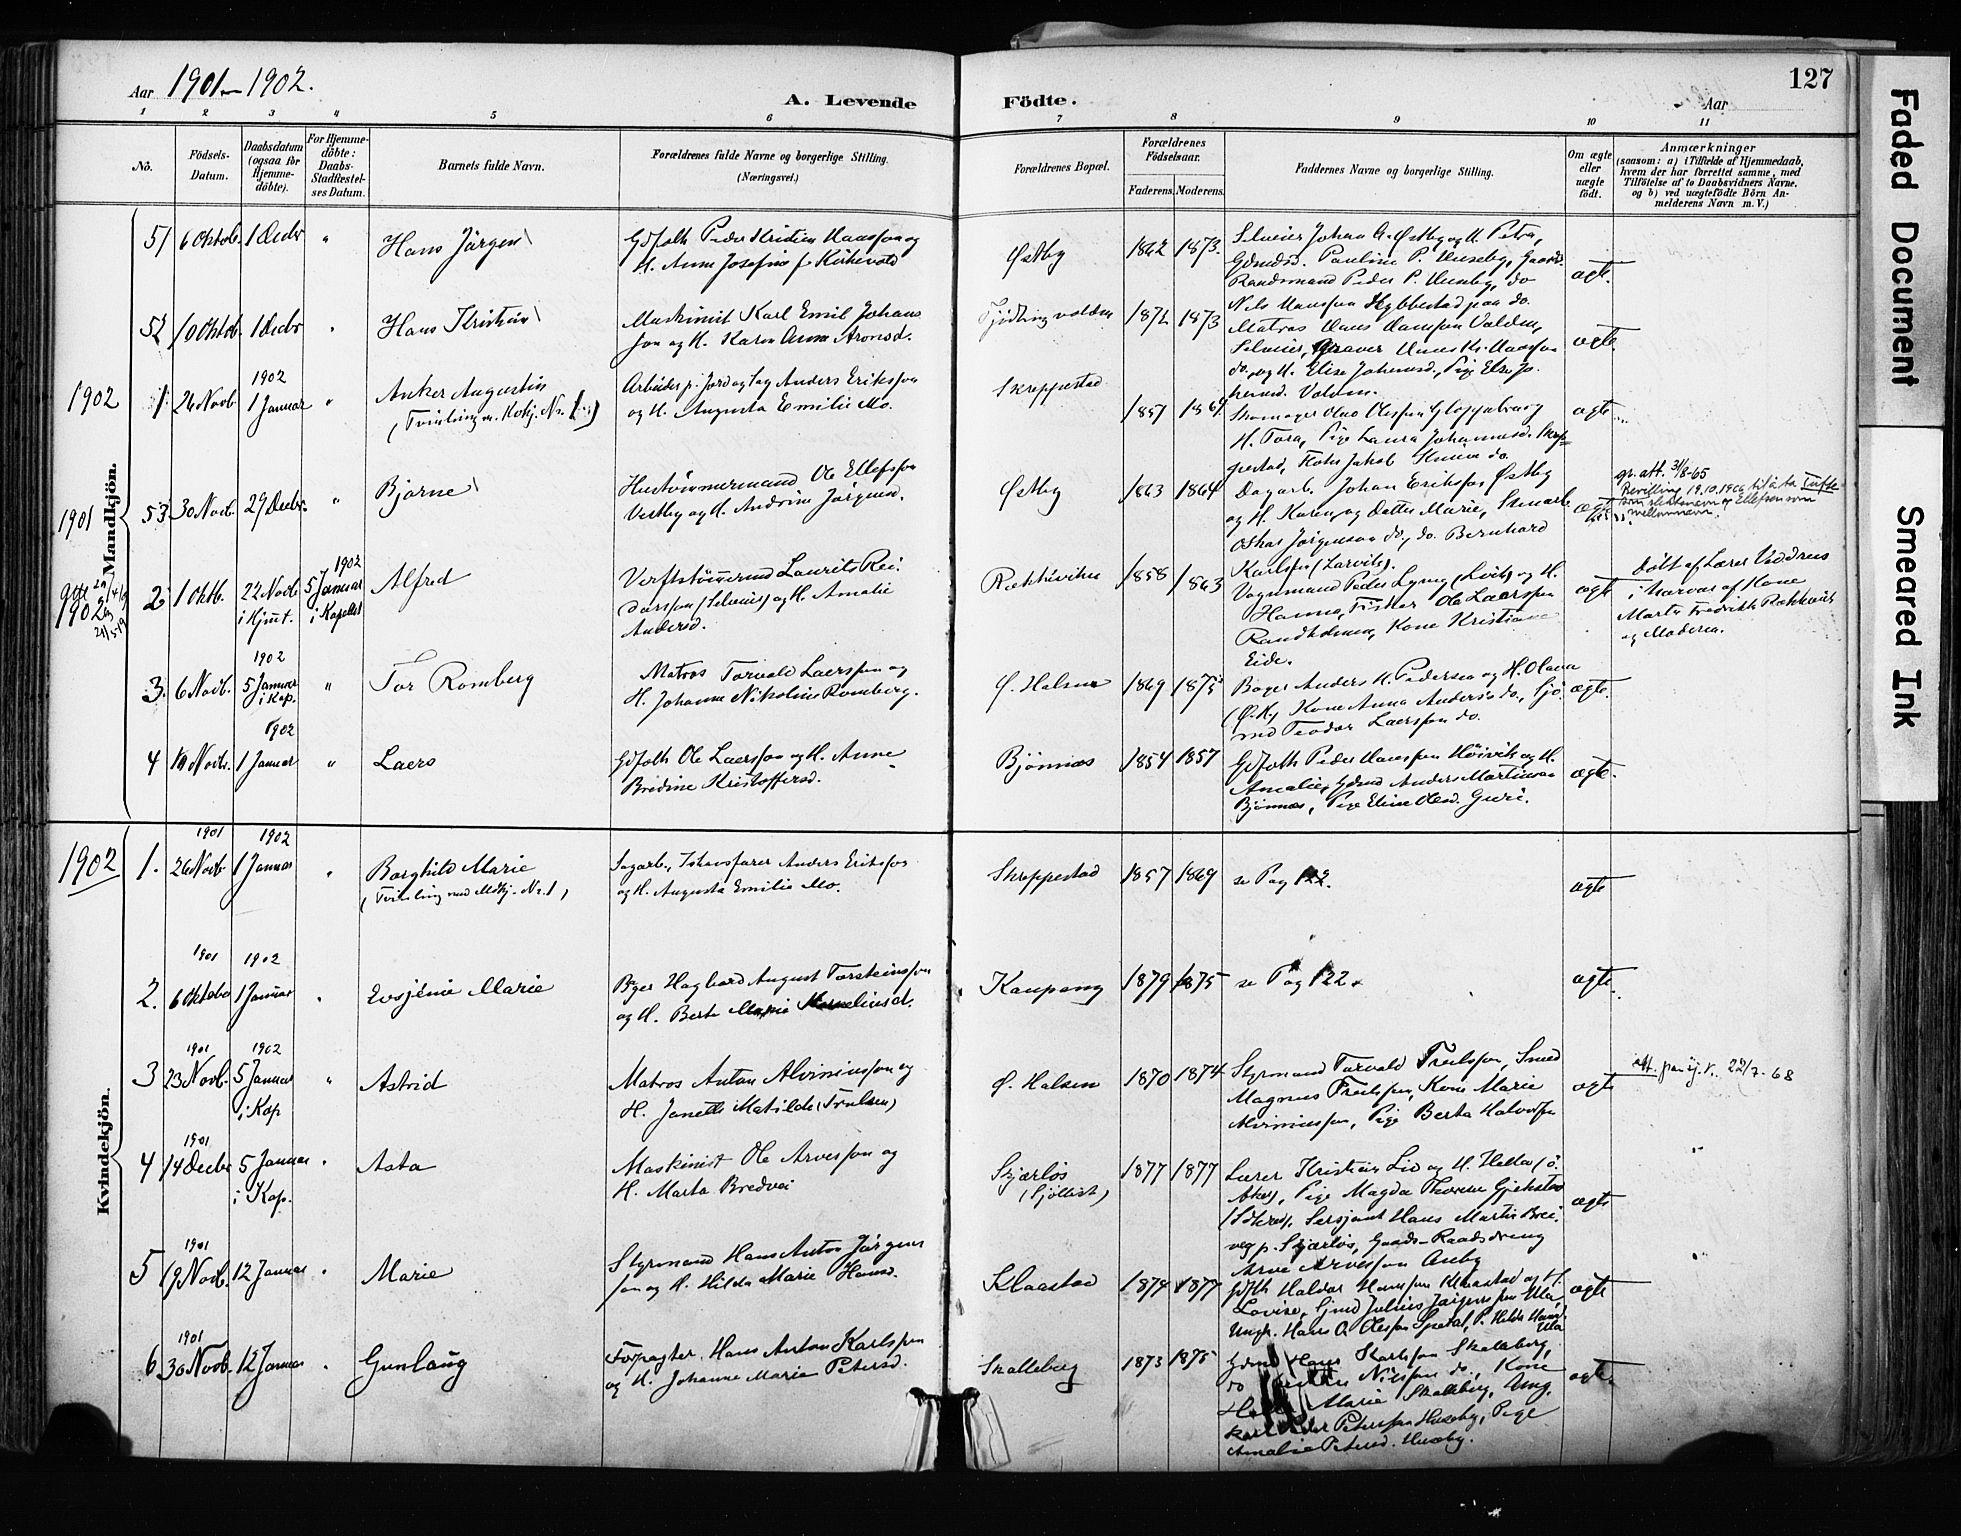 Aar 1901–1902.
A. Levende Födte.
Aar
127
1 2 3 4 5 6 7 8 9 10 11
No.
Födsels-Datum.
Daabsdatum (ogsaa for Hjemme-döbte).
For Hjemme-döbte: Daabs-Stadfæstel-ses Datum.
Barnets fulde Navn.
Forældrenes fulde Navne og borgerlige Stilling. (Næringsvei.)
Forældrenes Bopæl.
Forældrenes Födselsaar.
Faderens. Moderens.
Faddernes Navne og borgerlige Stilling.
Om ægte eller uægte födt.
Anmærkninger
(saasom: a) i Tilfælde af Hjemmedaab,
hvem der har forrettet samme, med
Tilföielse af to Daabsvidners Navne,
og b) ved uægtefödte Börn An-
melderens Navn m. V.)
Mandkjön.
51 6 Oktob. 1 Decbr "
Hans Jørgen
Gdfolk Peder Kristian Hansson og
H. Anne Josefine f. Kirkevold
Østby
1862 1873.
Selveier Johan A. Østby og H. Petra,
Gdmdsd. Pauline P. Huseby, Gaard-
Raadsmand Peder P. Huseby, do
ægte.
52 10 Oktob. 1 Decbr "
Hans Kristian
Maskinist Karl Emil Johans
son og H. Karen Anna Aronsd.
1872 1873
Nils Hansson Hybbestad paa do.
Matros Hans Hansson Valdm,
Selveier, Graver Hans Kr. Hansson
do, og H. Elise Johansd., Pige Else Jo
hansd. Valdm.
ægte.
1902
1 26 Novb. 1902 1 Januar "
Anker Augustin
(Tvilling m. Kvkj. No. 1.)
Arbeider p. Jord og Sag Anders Eriksson
og H. Augusta Emilie Mo.
Skreppestad
1857 1869.
Skomager Olaus Olsson Gloppe
H. Tora, Pige Laura Johannesd. Skrep-
pestad, Jakob do.
ægte
1901
53 30 Novb. 29 Decbr. "
Bjarne
Hustömmermand Ole Ellefsson
Vestby og H. Andrine Jørgensd.
Østby
1863 1864
Dagarb. Johan Eriksson Østby
og H. Karen, og Datter Marie, Smaarb.
Oskar Jørgensson do, do. Bernhard
Karlsson (Larvik).
ægte
gr. att. 31/8-65
Bevilling 19.10.1966 til å ta Tufte
som slektsnavn og Ellefsen som
mellomnavn.
1902
2 1 Oktb. 22 Novb i Hjmt. 1902 5 Januar i Kapellet
Alfred
Verftstömmermd Laurits Rei-
darsson (Selveier) og H. Amalie
Andersd.
Rekkeviken
1858 1863
Vognmand Peder Lyng (Lvik) og H.
Hanna, Fisker Ole Laersson
Randholmen, Kone Kristiane
Eide.
ægte
Døbt af Lærer
i Nærvær af Kone
Marte Fredrikke Rekkevik
og Moderen.
3. 6 Novb. 1902 5 Januar i Kap. "
Tor Romberg
Matros Torvald Laersson og
H. Johanne Nikoline Romberg.
Ø. Halsen
1869 1875
Bager Anders H. Pedersen og H. Olava
(Ø.H.) Kone Anna Andersen do., Sjö-
md Teodor Laersson do.
ægte.
4 19 Novb. 1902 1 Januar "
Laers
Gdfolk Ole Laersson og H. Anne
Bredine Kristoffersd.
Bjønnes
1854 1857
Gdfolk Peder Hansson Höivik og H.
Amalie, Gdmd Anders Martinsen
Bjønnes, Pige Eline Olsd. Guri.
ægte.
Kvindekjön.
1902
1. 1901 26 Novb 1902 1 Januar "
Borghild Marie
(Tvilling med Mdkj. No. 1)
Sagarb., Ishavsfarer Anders Eriksson
og H. Augusta Emilie Mo.
Skreppestad
1857 1869
se Pag 122.
ægte
2. 1901 6 Oktober 1902 1 Januar "
Evsjenie Marie
Bager Hagbard August Torsteinsson
og H. Berte Marie Korneliusd.
Kaupang
1879 1875
se Pag 122.
ægte.
3 1901 23 Novb. 1902 5 Januar i Kap "
Astrid
Matros Anton Alvinussson og
H. Janette Matilde (Trulsen)
Ø. Halsen
1870 1874
Styrmand Torvald Trulsson, Smed
Magnus Trulsson, Kone Marie
Alvinusson, Pige Berta Halvorsson
ægte
att. par ij. v. 22/7-68
4 1901 14 Decbr 5 Januar i Kap. "
Asta
Maskinist Ole Arvesson og
H. Marta Bredvei
Skjærløs
(Sjöllist)
1877 1877
Lærer Kristian Lie og H. Helta (ö.
Aker), Pige Magda Therese Gjekstad
(Söhered), Sersjant Hans Martin Brei-
veg p. Skjærløs, Gaards-Raadsdreng
Arve Arvesson Auby
ægte
5 1901 19 Novb. 12 Januar "
Marie
Styrmand Hans Anton Jørgens
son og H. Hilda Marie Hansd.
Klaastad
1874 1877
Gdflk Haldor Hansson Klaastad og H.
Lovise, Sjmd Julius Jørgensson Ula
Ungk. Hans O. Olesson Spetal, P. Hilda Hansd. Ula
ægte
6 1901 30 Novb. 12 Januar "
Gunlaug
Forpagter Hans Anton Karlsson
og H. Johanne Marie Petersd.
Skalleberg
1873 1875
Gdmd Hans Karlsson Skalleberg,
do Nilsson do, Kone
Marie Skalleberg, Ung-
karl Peder Petersson Huseby, Pige
Amalie Petersd. Huseby.
ægte.
Faded Document
Smeared Ink